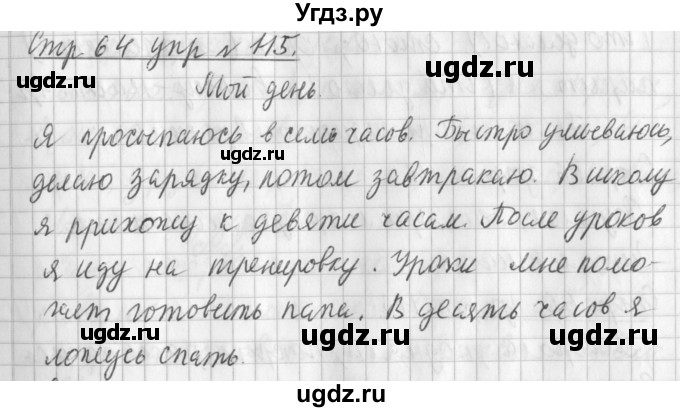 Угдз.ру
Стр 64 упр № 115.
Мой день.
Я просыпаюсь в семь часов. Быстро умываюсь,
ugdz.ru ugdz.ru
делаю зарядку, потом завтракаю. В школу
я прихожу к девяти часам. После уроков
ugdz.ru
я иду на тренировку. Уроки мне помо-
гает готовить папа. В десять часов я
ugdz.ru ugdz.ru
ложусь спать.
ugdz.ru ugdz.ru